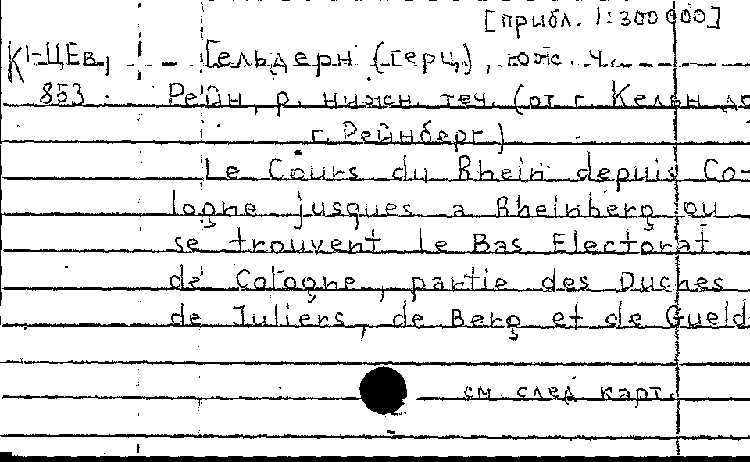 [прибл. 1:300 000]
К1-ЦЕв, Гельдерн (герц), юж. ч.
853 Рейн, р. нижн. теч. (от г. Кельн до
г. Рейнберг)
Le Cours du Rhein depuis Co-
logne jusques a Rheinberg ou
se trouvent le Bas Electorat
de Cologne, partie des Duches
de Juliers, de Berg et de Gueld
см след карт.